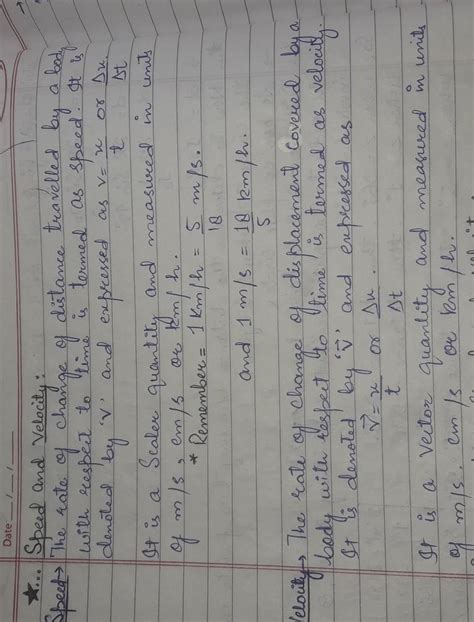 Date __/__/__
★... Speed and Velocity:
Speed → The rate of change of distance travelled by a body
with respect to time is termed as speed. It is
denoted by 'v' and expressed as v = x/t or Δx/Δt
It is a Scaler quantity and measured in units
of m/s, cm/s or km/h.
* Remember = 1 km/h = 5/18 m/s.
and 1 m/s = 18/5 km/h.
Velocity → The rate of change of displacement covered by a
body with respect to time is termed as velocity.
It is denoted by 'v⃗' and expressed as
v⃗ = x/t or Δx/Δt.
It is a Vector quantity and measured in units
of m/s, cm/s or km/h.